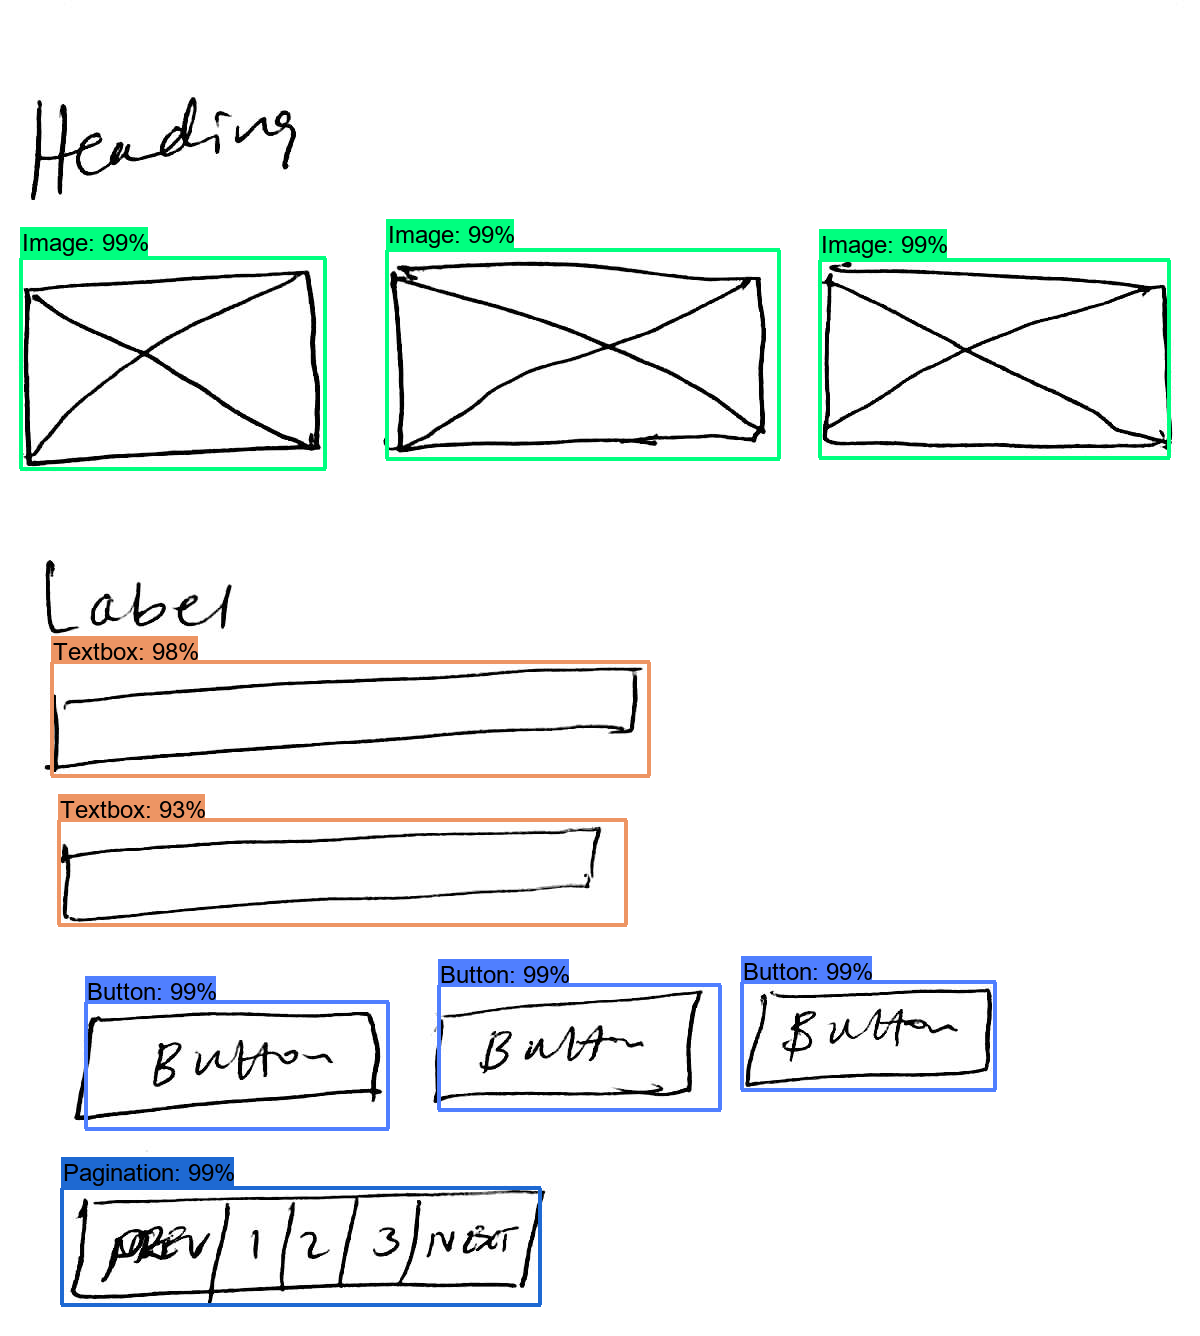 Heading
Image: 99% Image: 99% Image: 99%
Label
Textbox: 98%
Textbox: 93%
Button: 99% Button: 99% Button: 99%
Button Button Button
Pagination: 99%
PREV 1 2 3 NEXT